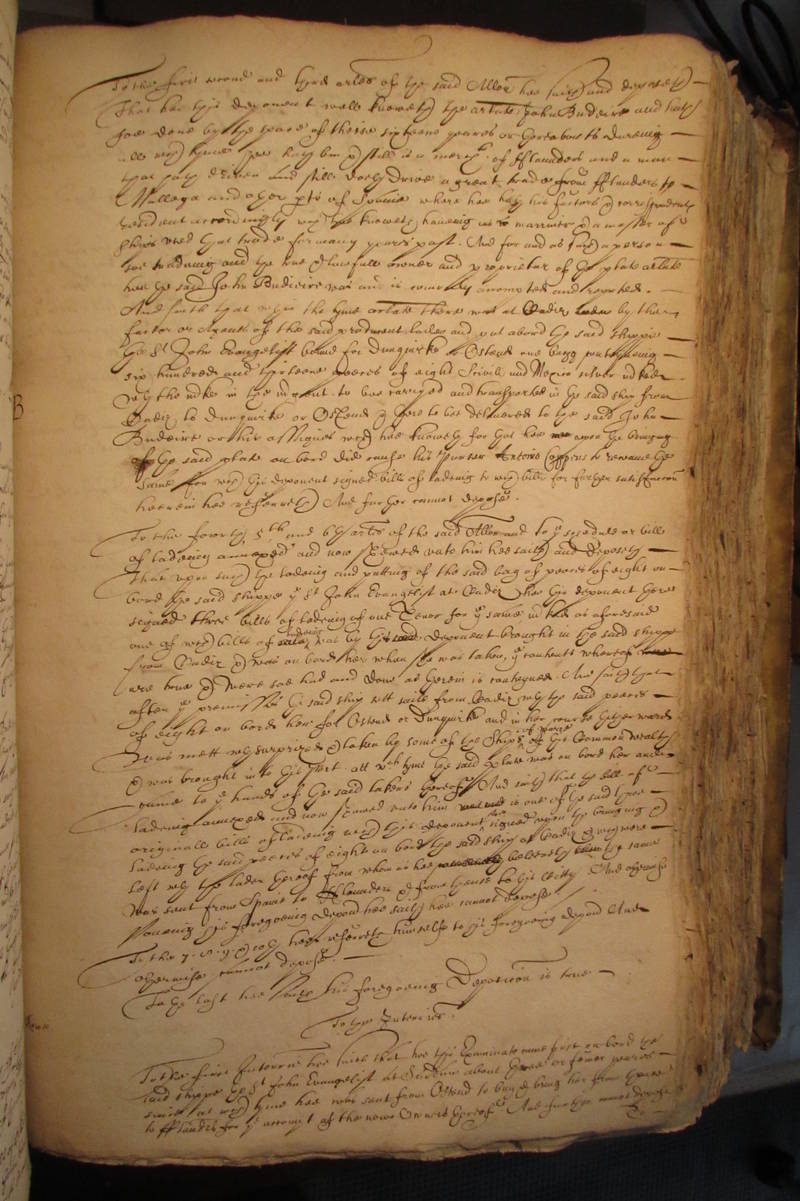 To the first second and third articles of the said Allegation hee saith and deposeth
That hee this deponent well knoweth the articulate John Budeire and hath
soe done by the space of theise sixteene yeares or thereabouts dureing
all which tyme hee hath bin and still is a merchant of fflanders and a man
that hath driven and still doeth drive a great trade from fflanders to
Mallega and other parts of Spaine where hee hath his factors and correspondents
resident accordingly which hee knoweth haveing as marriner and a master of
shipps used that trade for many yeares past. And for and as such a person
soe tradeing and the true and lawfull owner and proprietor of the plate articulate
hee the said John Budieire was and is commonly accompted and reputed.
And saith that upon the tyme articulate there was at Cadiz laden by the
factor or Agents of the said producent laden and put aboard the said shippe
the St John Evangelist bound for Dunquirke or Ostend one bagg conteyneing
six hundred and thirteene peeces of eight Sevill and Mexico silver
with the marke in the margent to bee carryed and transported in the said ship from
Cadiz to Dunquirke or Ostend and there to bee delivered to the said John
Budeire or his assignes which hee knoweth for that hee upon the bringing
of the said plate on bord did cause his Purser Antonio to receive the
same for which this deponent signed bills of ladeing to which bills for further satisfaction
herein hee referreth And further cannot depose.
To the fourth, 5th and 6th arts of the said Allegation and to the scedule or bill
of ladeing annexed and now shewed unto him hee saith and deposeth
That upon such the ladeing and putting of the said bag of peeces of eight on
bord the said shippe the St John Evangelist at Cadiz hee this deponent there
signed three bills of ladeing of one Tenor for the same in as aforesaid
one of which bills of ladeing was by this deponent brought in the said shippe
from Cadiz and was on bord her when shee was taken, the contents whereof
were true and were soe had and done as therein is conteyned. And saith that
after the premisses the said ship sett saile from Cadiz with the said peeces
of eight on bord her for Ostend or Dunquirke and in her course thitherwards
was mett with surprized and taken by some of the Shipps of warre of this Common wealth
and was brought in to this Port. att which tyme the said plate was on bord her and
came to the hands of the said takers thereof. And saith that the bill of
ladeing annexed and now shewed unto him is one of the said three
originall bills of ladeing which this deponent soe signed upon the bringing and
ladeing the said peeces of eight on bord the said ship at Cadiz and were
left with the lader thereof from whom as hee beleeveth the same
was sent from Spaine to fflanders and from thence to this Citty And otherwise
saveing his foregoeing deposition hee saith hee cannot depose
To the 7. 8. 9. and 10th hee referreth himselfe to his foregoeing deposition And
otherwise cannot depose.
To the last hee saith his foregoeing Deposition is true
To the Interries.
To the first Interrie hee saith that hee this Examinate came first on bord the
said shippe the St John Evangelist at about three or fower yeares
since at which tyme hee was sent from Ostend to buy and bring her from thence
to fflanders for the accompt of the nowe Owners thereof And further cannot depose